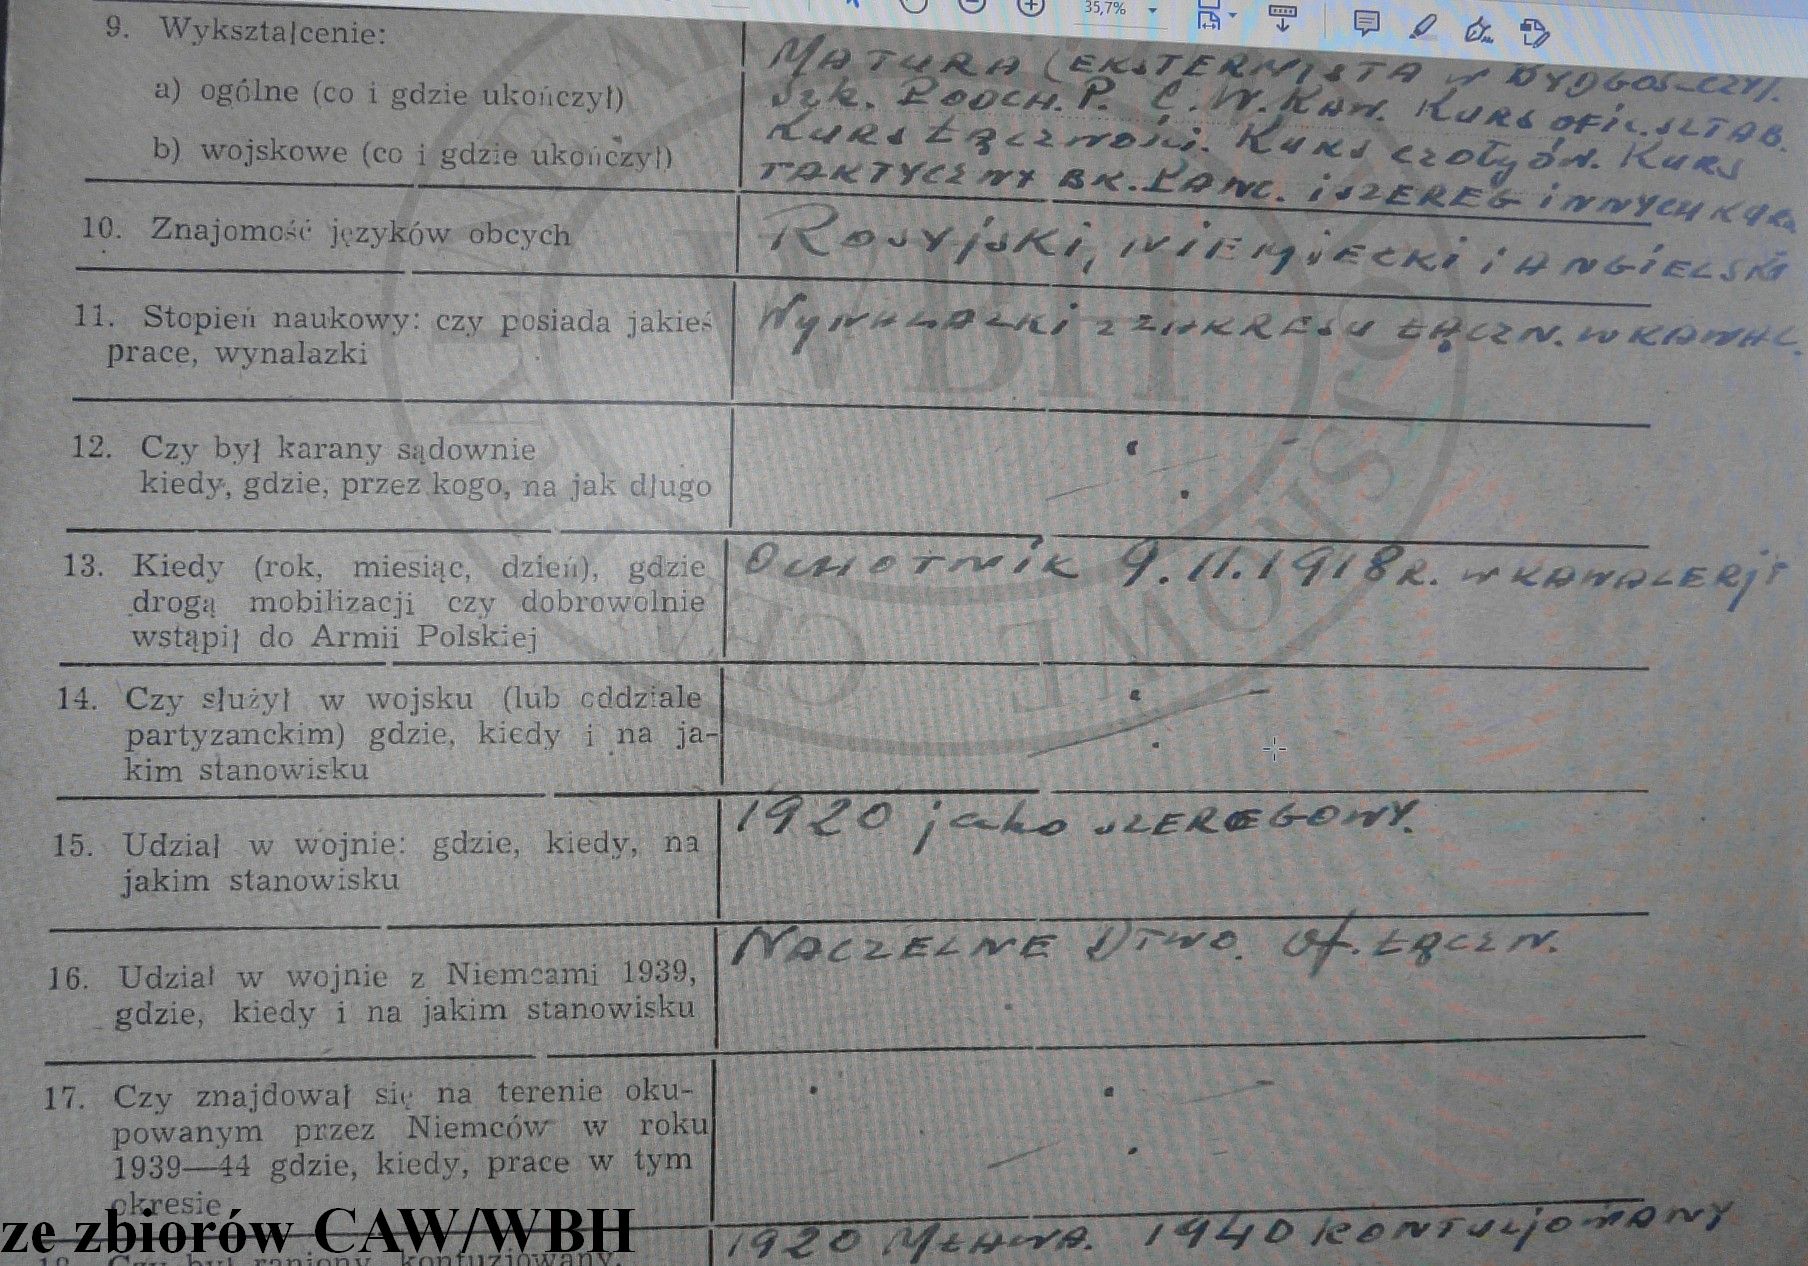 35,7%
9. Wykształcenie:
a) ogólne (co i gdzie ukończył)
b) wojskowe (co i gdzie ukończył)
MATURA (EKSTERNISTA W BYDGOSZCZY).
SZK. PODCH. P. C.W.KAW. KURS OFIC. SZTAB.
KURS ŁĄCZNOŚCI. KURS CZOŁGÓW. KURS
TAKTYCZNY BR. PANC. i SZEREG INNYCH
10. Znajomość języków obcych
ROSYJSKI, NIEMIECKI i ANGIELSKI
11. Stopień naukowy: czy posiada jakieś
prace, wynalazki
WYNALAZKI Z ZAKRESU ŁĄCZN. W KAWAL.
12. Czy był karany sądownie
kiedy, gdzie, przez kogo, na jak długo
13. Kiedy (rok, miesiąc, dzień), gdzie
drogą mobilizacji czy dobrowolnie
wstąpił do Armii Polskiej
OCHOTNIK 9.11.1918 R. W KAWALERJI
14. Czy służył w wojsku (lub oddziale
partyzanckim) gdzie, kiedy i na ja-
kim stanowisku
15. Udział w wojnie: gdzie, kiedy, na
jakim stanowisku
1920 jako SZEREGOWY.
16. Udział w wojnie z Niemcami 1939,
gdzie, kiedy i na jakim stanowisku
NACZELNE DTWO. Of. ŁĄCZN.
17. Czy znajdował się na terenie oku-
powanym przez Niemców w roku
1939—44 gdzie, kiedy, prace w tym
okresie
ze zbiorów CAW/WBH
18. Czy był raniony, kontuzjowany,
1920 MŁAWA. 1940 KONTUZJOWANY
WBH